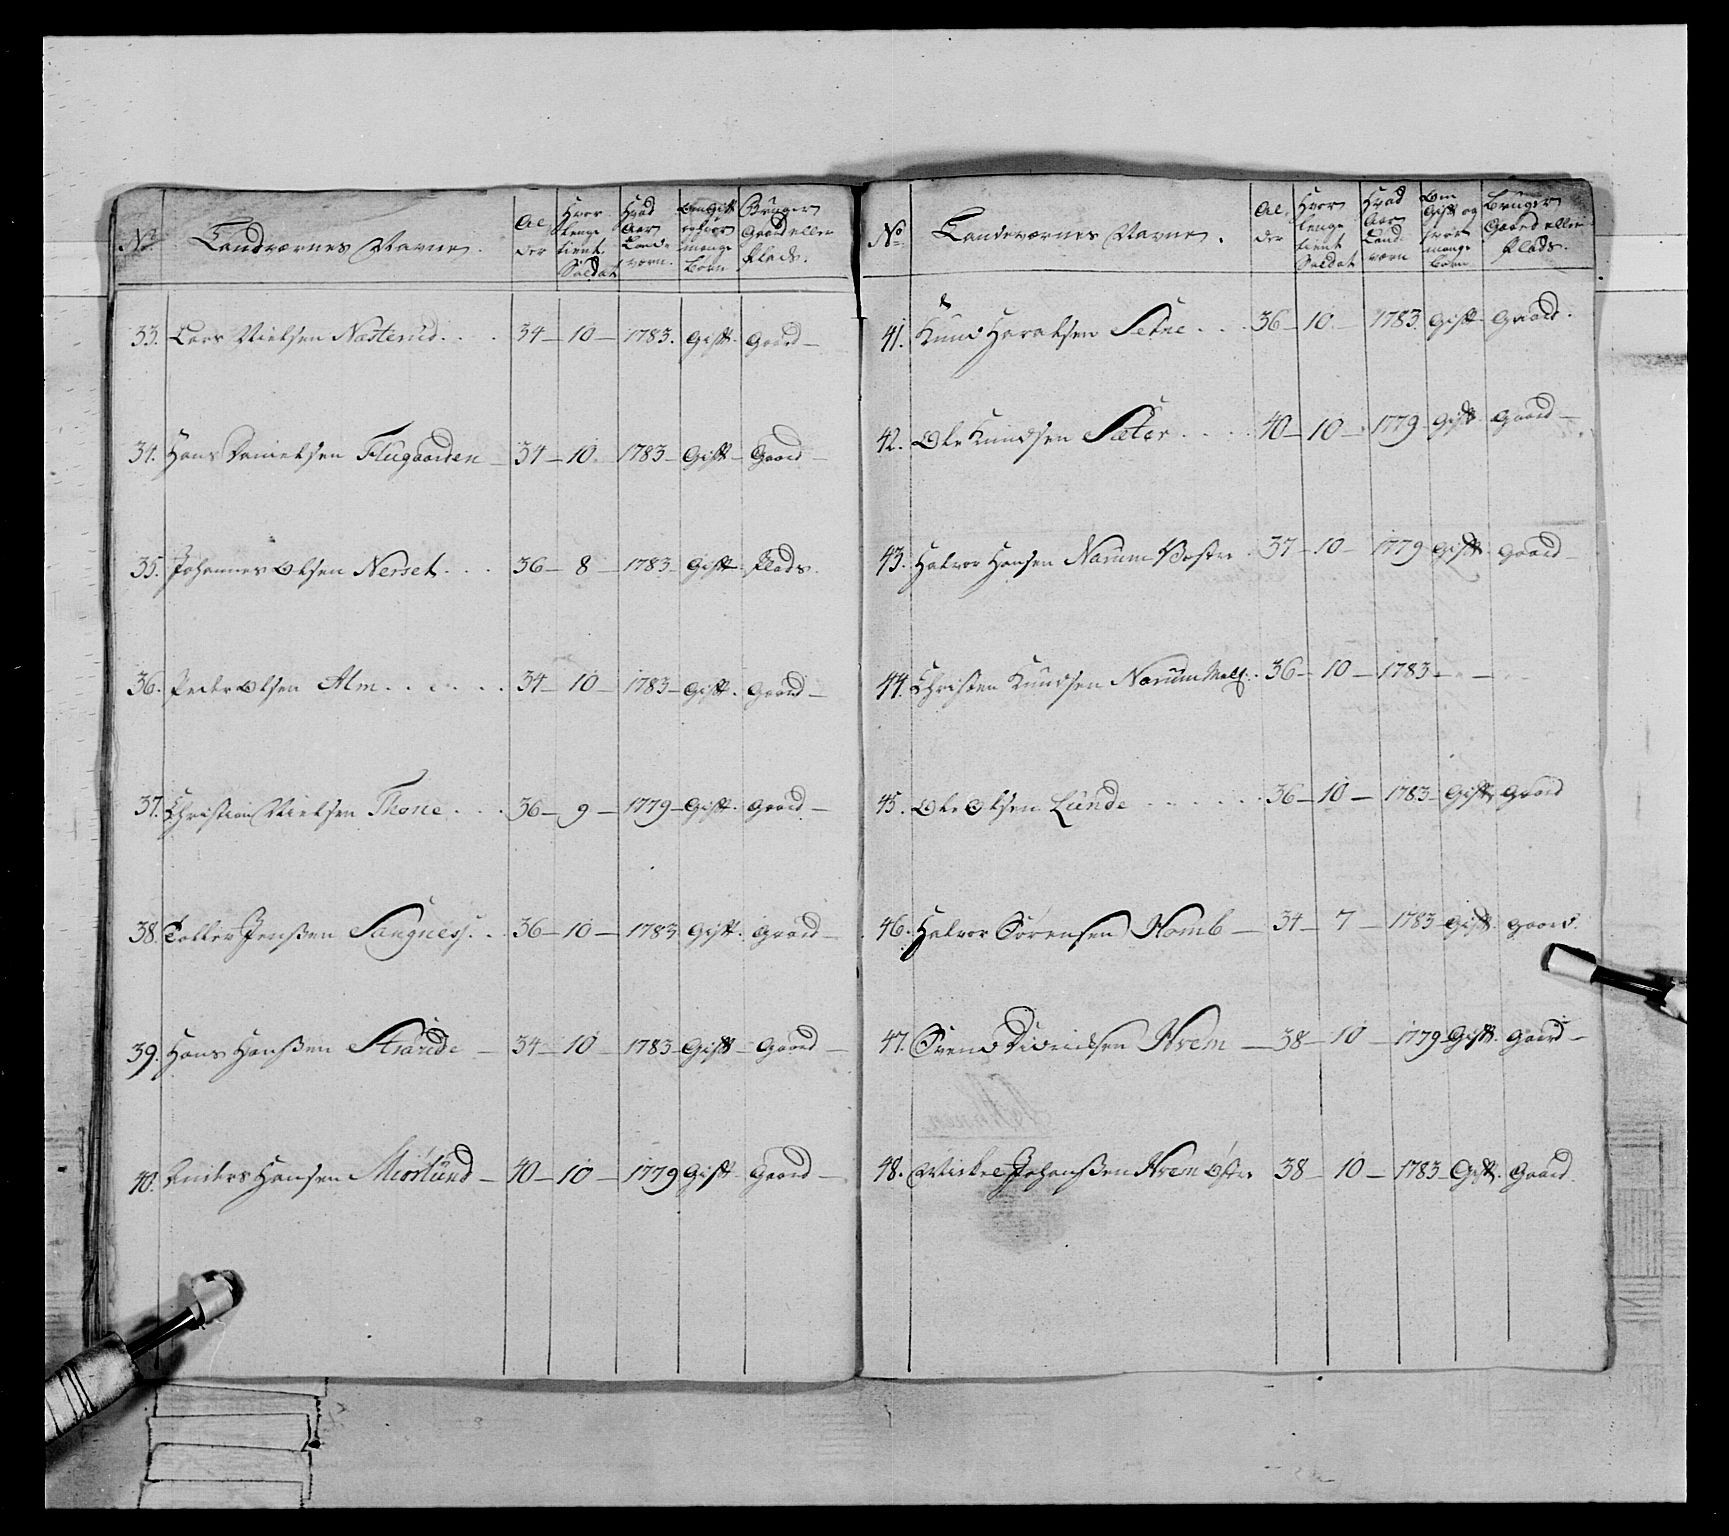 No
Landværnes Navne.
Al
der
Hvor
lenge
tient
Soldat
Hvad
Aar
Lande
værn.
Om Gift
og hvor
mange
Børn
Bruger
Gaard eller
Plads.
33. Lars Nielsen Nasterud. . . 34 — 10 — 1783. Gift. Gaard —
34. Hans Danielsen Flugaarden — 34 — 10. 1783 — Gift — Gaard —
35. Johannes Olsen Nerset. . . 36 — 8 — 1783. Gift — Plads.
36. Peder Olsen Alm. . . . . . 34 — 10 — 1783 — Gift. Gaard —
37. Christian Nielsen Thone. . . . 36 — 9 — 1779 — Gift. Gaard —
38. Toller Jenssen Saugness. . 36 — 10 — 1783 Gift. Gaard —
39. Hans Hanssen Strande — 34 — 10 — 1783 — Gift — Gaard —
40. Anders Hansen Miørlund — 40 — 10 — 1779 Gift. Gaard —
No
Landeværnes Navne.
Al
der
Hvor
lenge
tient
Soldat
Hvad
Aar
Land
værn
Om
Gift og
hvor
mange
Børn
Bruger
Gaard eller
Plads.
41. Knud Haralsen Setne. . . . 36 — 10. — 1783. Gift. Gaard.
42. Ole Knudsen Sæter. . . . 40 — 10 — 1779 — Gift Gaard —
43. Halvor Hansen Narum Vestre. 37 — 10 — 1779 — Gift. Gaard —
44. Christen Knudsen Narum . 36 — 10 — 1783 — . —
45. Ole Olsen Lunde . . . . . . 36 — 10 — 1783 — Gift. Gaard
46. Halvor Sørensen Nomb — 34 — 7 — 1783 — Gift. Gaard.
47. Svend Hrem — 38 — 10 — 1779 — Gift. Gaard —
48. Mickel Johanssen Hrem Østre 38 — 10 — 1783 — Gift. Gaard.